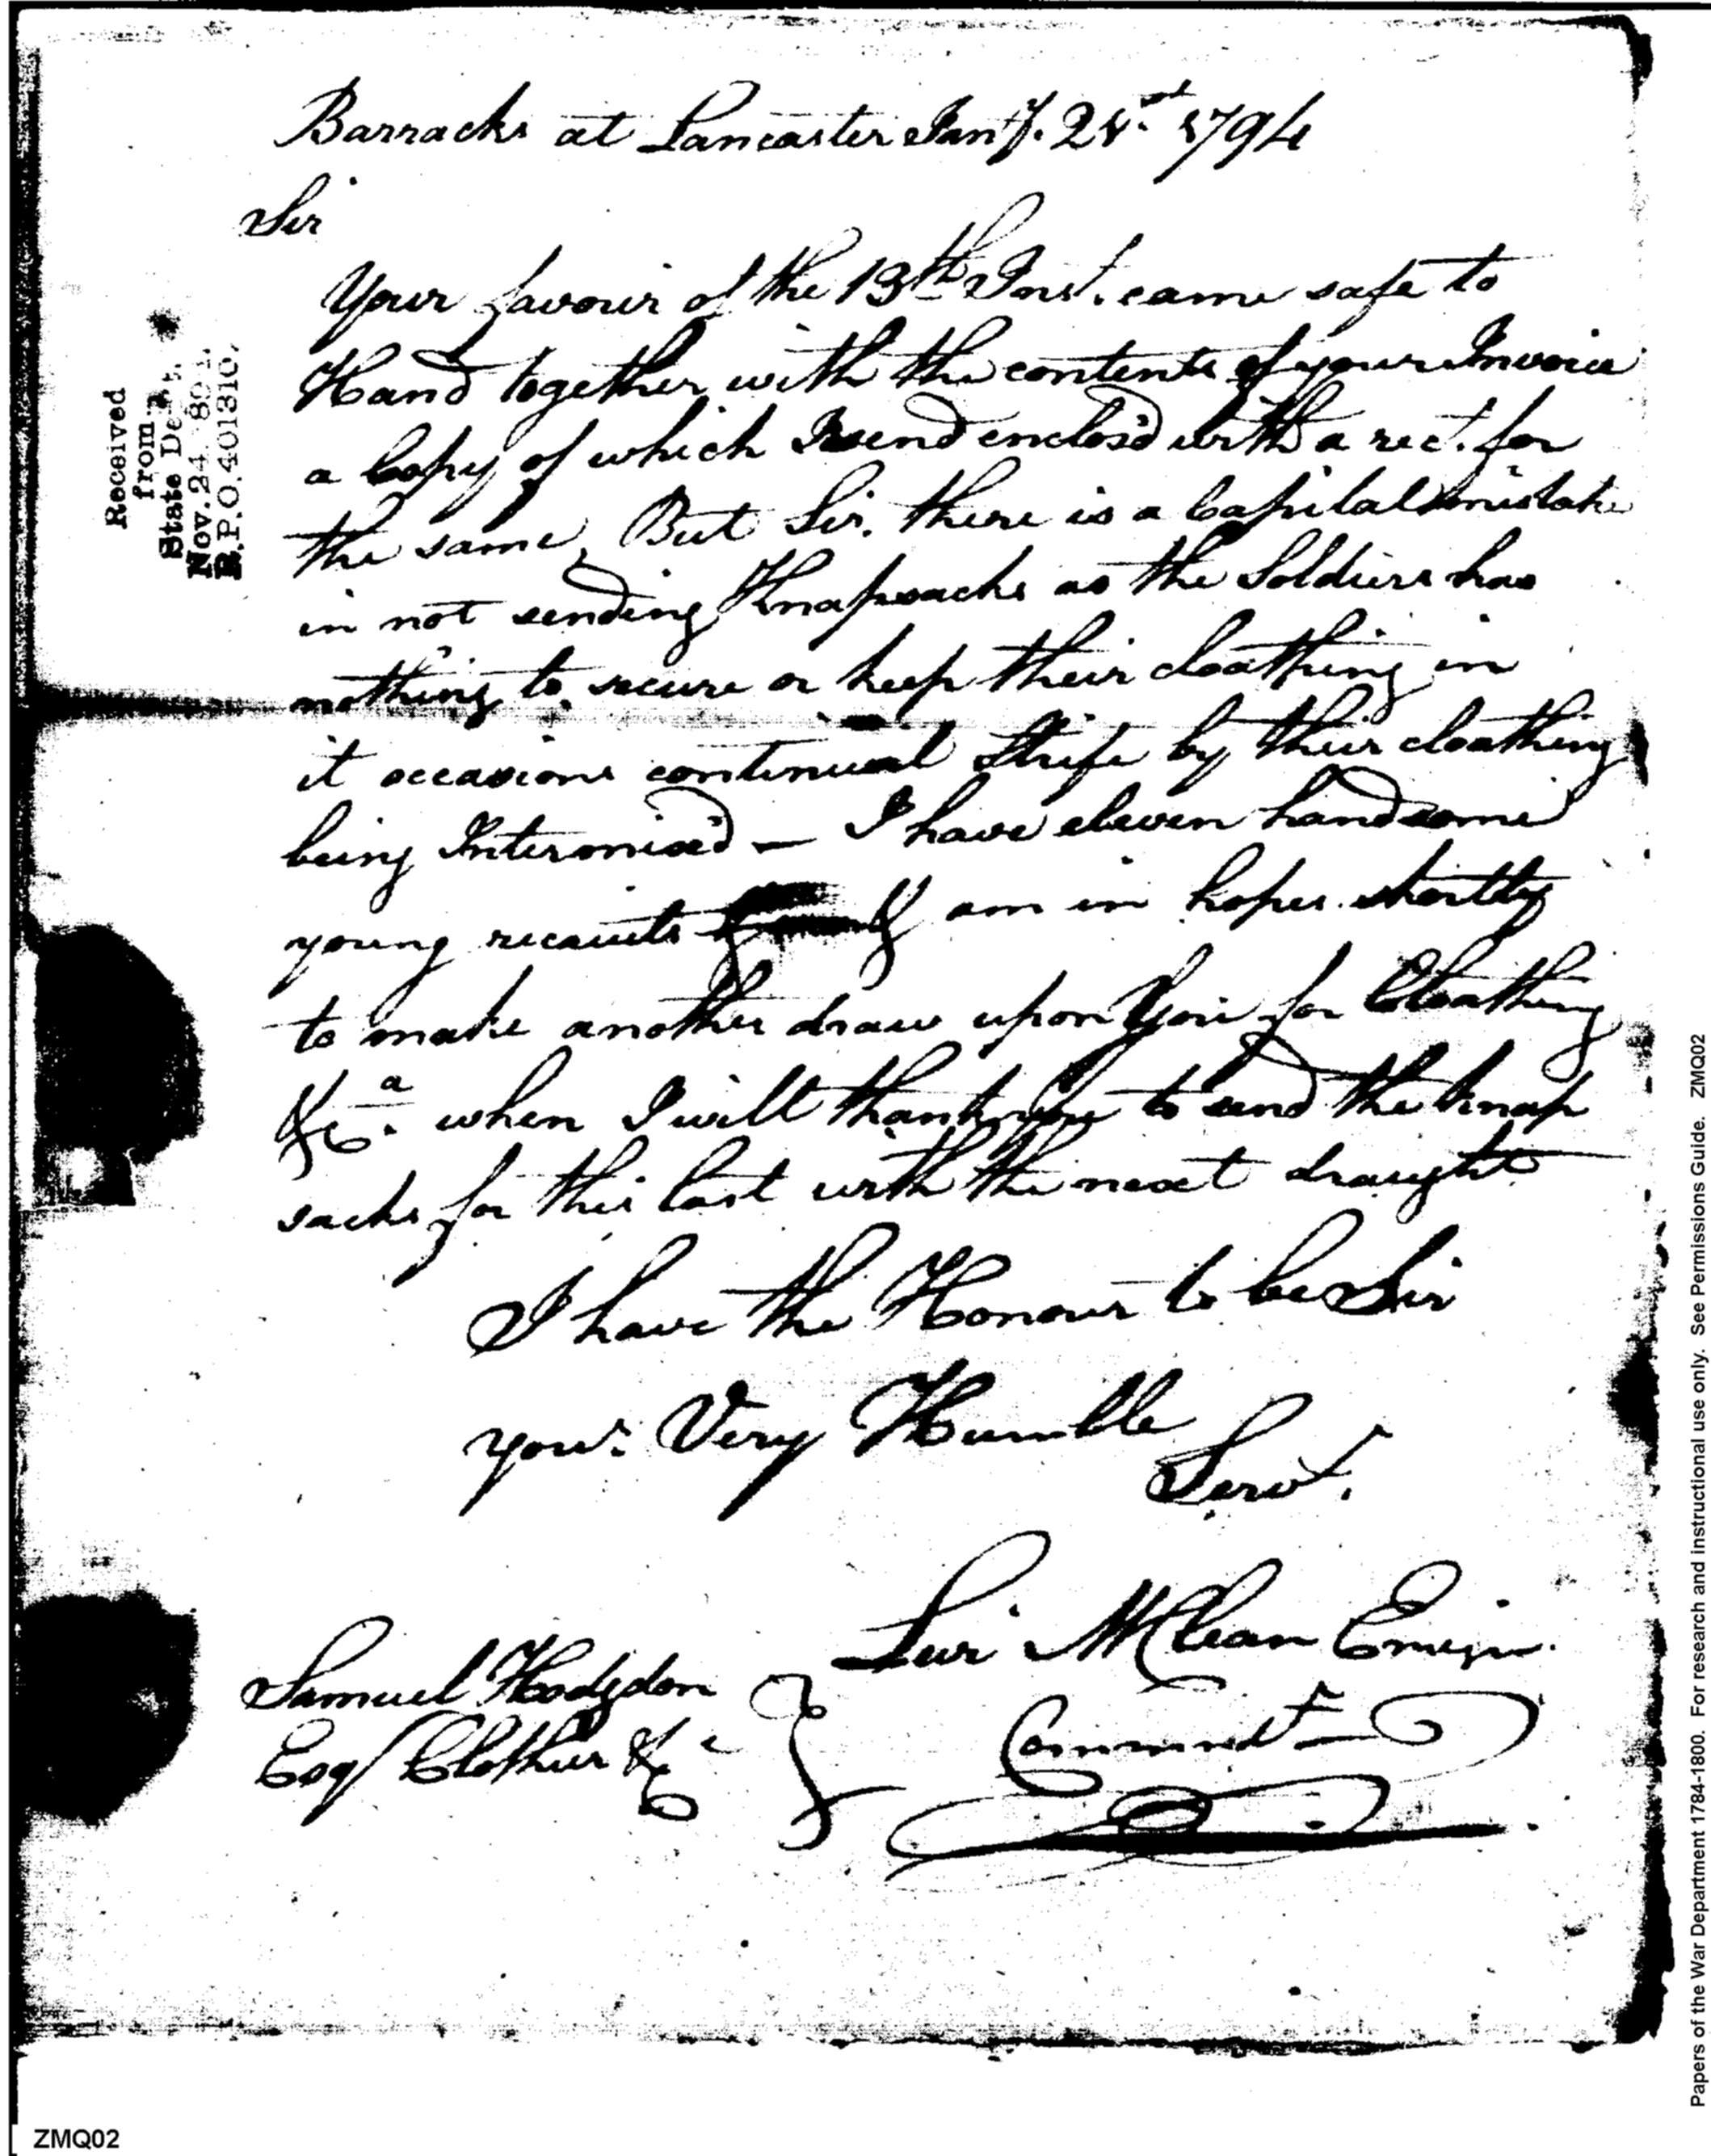 Barracks at Lancaster Jany. 21st. 1794
Sir
Your favour of the 13th Inst. came safe to
Hand together with the contents of your Invoice
a Copy of which I send enclos'd with a rect. for
the same, But Sir, there is a Capital mistake
in not sending Knapsacks as the Soldiers has
nothing to secure or keep their cloathing in
it occasions continual Strife by their cloathing
being Intermixed — I have eleven handsome
young recruits & am in hopes shortly
to make another draw upon You for Cloathing
&ca. when I will thank you to send the knap
sacks for this last with the next draught
I have the Honour to be Sir
your Very Humble
Servt.
Levi McClean Ensign.
Commndt
Samuel Hodgdon
Esqr Clothier &c
Received
from
State Dept.
Nov. 24. 1894.
R.P.O. 401310.
Papers of the War Department 1784-1800. For research and instructional use only. See Permissions Guide. ZMQ02
ZMQ02